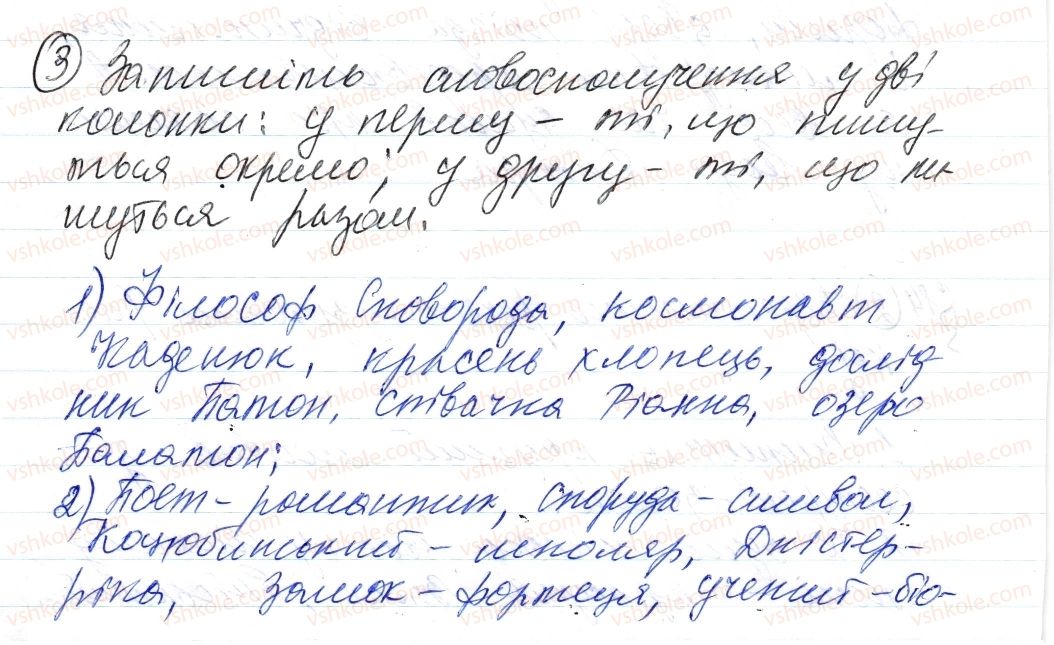 3 Запишіть словосполучення у дві
колонки: у першу - ті, що пишу-
ться окремо; у другу - ті, що пи-
шуться разом.
1) Філософ Сковорода, космонавт
Каденюк, красень хлопець, дослід
ник Патон, співачка Ріанна, озеро
Балатон;
2) Поет - романтик, споруда - символ,
Коцюбинський - школяр, Дністер-
ріка, замок - фортеця, учений - біо-